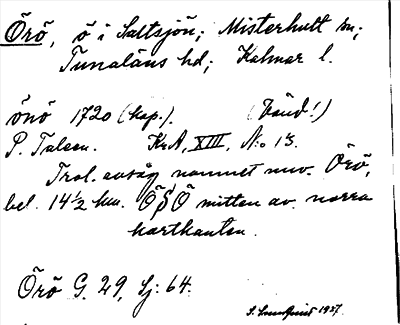 Örö, ö i Saltsjön; Misterhult sn;
Tunaläns hd; Kalmar l.
önö 1720 (kop.). (bänd!)
P. Talsen. KrA, XIII, N:o 13.
Trol. avsåg namnet nuv. Örö,
bel. 14½ km. ÖSÖ mitten av norra
kartkanten.
Örö G. 29, Sj: 64.
1927.